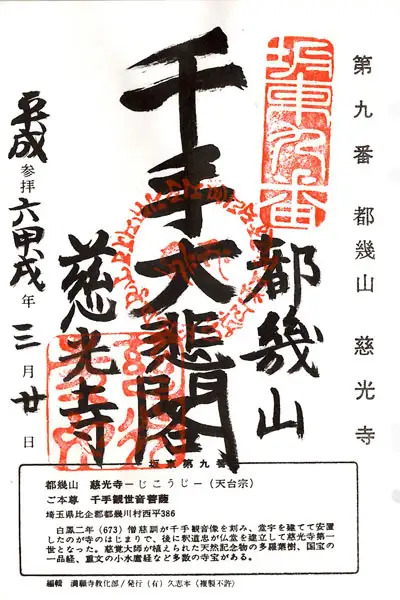 第九番　都幾山　慈光寺
坂東九番
都幾山
千手大悲閣
慈光寺
平成参拝六甲戌年三月廿日
坂東第九番
都幾山　慈光寺－じこうじ－（天台宗）
ご本尊　千手観世音菩薩
埼玉県比企郡都幾川村西平386
白鳳二年（673）僧慈訓が千手観音像を刻み、堂宇を建てて安置
したのが寺のはじまりで、後に釈道忠が仏堂を建立して慈光寺第一
世となった。慈覚大師が植えられた天然記念物の多羅葉樹、国宝の
一品経、重文の小水麗経など多数の寺宝がある。
編輯　満願寺教化部／発行（有）久志本（複製不許）